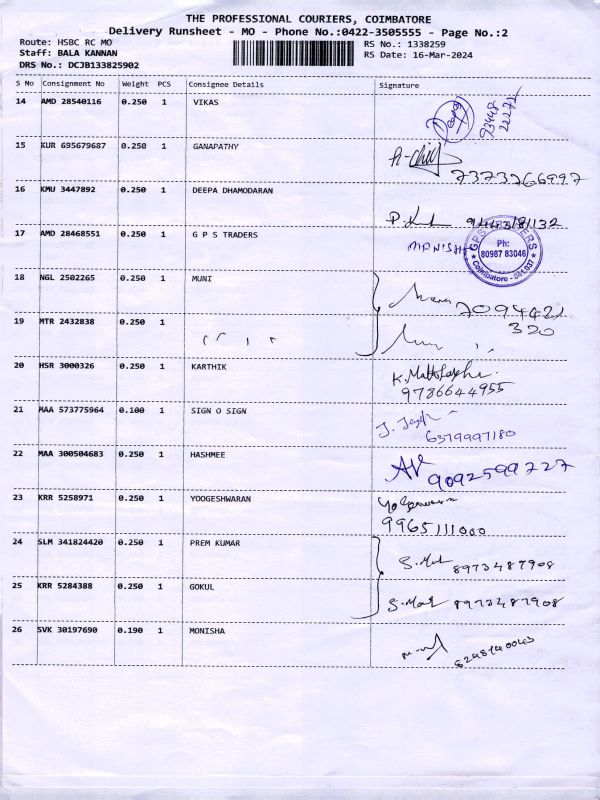 THE PROFESSIONAL COURIERS, COIMBATORE
Delivery Runsheet - MO - Phone No.:0422-3505555 - Page No.:2
Route: HSBC RC MO
Staff: BALA KANNAN
DRS No.: DCJB133825902
RS No.: 1338259
RS Date: 16-Mar-2024
S No Consignment No Weight PCS Consignee Details Signature
14 AMD 28540116 0.250 1 VIKAS
15 KUR 695679687 0.250 1 GANAPATHY
7373766997
16 KMU 3447892 0.250 1 DEEPA DHAMODARAN
17 AMD 28468551 0.250 1 G P S TRADERS MANISH
Ph:
80987 83046
18 NGL 2502265 0.250 1 MUNI
7094421
320
19 MTR 2432838 0.250 1
20 HSR 3000326 0.250 1 KARTHIK
9786644955
21 MAA 573775964 0.100 1 SIGN O SIGN
6379997180
22 MAA 300504683 0.250 1 HASHMEE
9092599727
23 KRR 5258971 0.250 1 YOOGESHWARAN
9965111000
24 SLM 341824420 0.250 1 PREM KUMAR
8973487908
25 KRR 5284388 0.250 1 GOKUL
8973487908
26 SVK 30197690 0.190 1 MONISHA